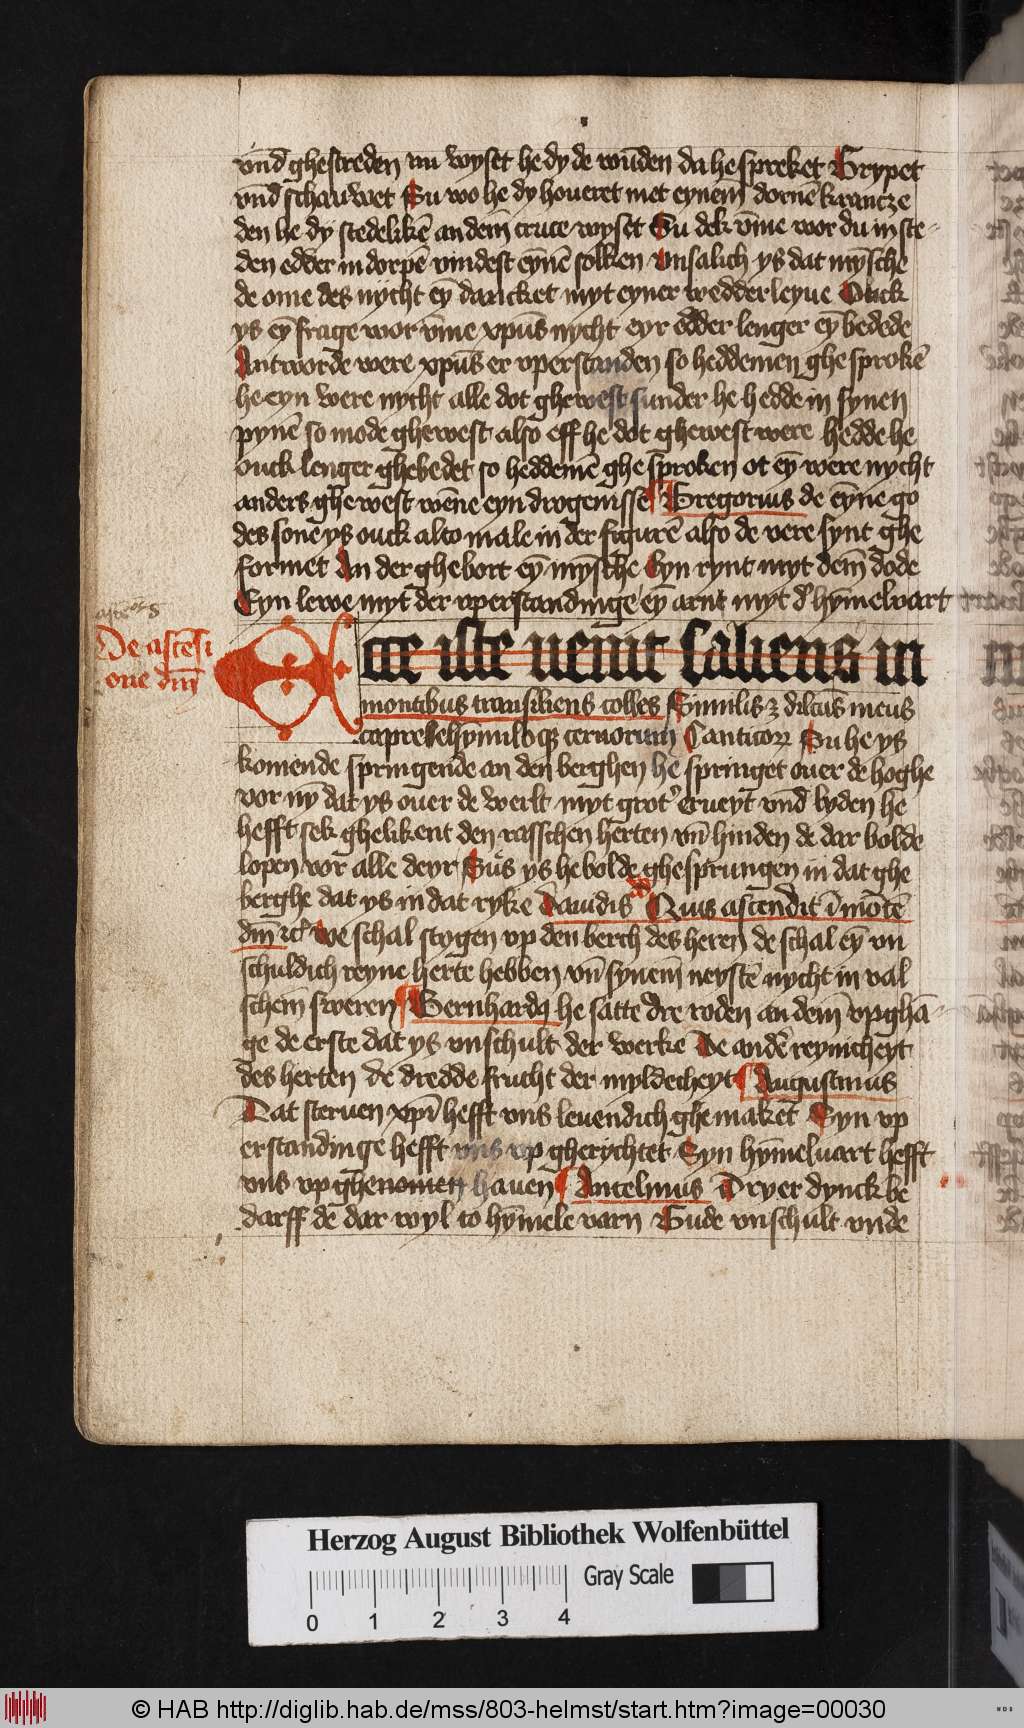 vnd ghestreden nu wyset he dy de wūden da he spreket Grypet
vnd schauwet Su wo he dy houeret met eynem dornē krantze
den he dy stedelikē an dem cruce wyset Su dek v̄me wor du in ste-
den edder in dorpē vindest eynē solken vnsalich ys dat mynsche
de ome des nycht ey dancket myt eyner wedderleyue Ouck
ys ey frage wor v̄me xpūs nycht eyr edder lenger ey bedede
Antworde were xpūs er vperstanden so heddemen ghesprokē
he eyn were nycht alle dot ghewest sunder he hedde in synen
pynē so mode ghewest also eff he dot ghewest were hedde he
ouck lenger ghebedet so heddemē ghesproken ot ey were nycht
anders ghewest wēne eyn drogenisse Gregorius de eyne go
des sone ys ouck alto male in der figurē also de vere synt ghe
formet An der ghebort ey mynsche Eyn rynt myt dem dode
Eyn lewe myt der vperstandinge ey arnt myt d' hymeluart
De ascēsi
one dm̄
Ecce iste uenit saliens in
montibus transiliens colles Similis ꝫ dilcūs meus
capree hynuloqꝫ ceruorum Canticoꝝ Su he ys
komende springende an den berghen he springet ouer de hoghe
vor ny dat ys ouer de werlt myt grot' erueyt vnd lyden he
hefft sek ghelikent den rasschen herten vn̄ hinden de dar bolde
lopen vor alle deyr Sus ys he bolde ghesprungen in dat ghe
berghe dat ys in dat ryke Dauidis Quis ascendit ī mōtē
dm̄ We schal stygen vp den berch des heren de schal ey vn
schuldich reyne herte hebben vn̄ synem neystē nycht in val
schem sweren Bernhardꝰ he satte dre roden an dem vpghā-
ge de erste dat ys vnschult der werke De ander reynicheyt
des herten de dredde frucht der myldecheyt Augustinus
Dat steruen xpī hefft vns leuendich ghemaket Eyn vp
erstandinge hefft vns vp gherychtet Syn hymeluart hefft
vns vp ghenomen hauen Anselmus Dryer dynck be
darff de dar wyl to hymele varn Gude vnschult vnde
Herzog August Bibliothek Wolfenbüttel
Gray Scale
0 1 2 3 4
© HAB http://diglib.hab.de/mss/803-helmst/start.htm?image=00030